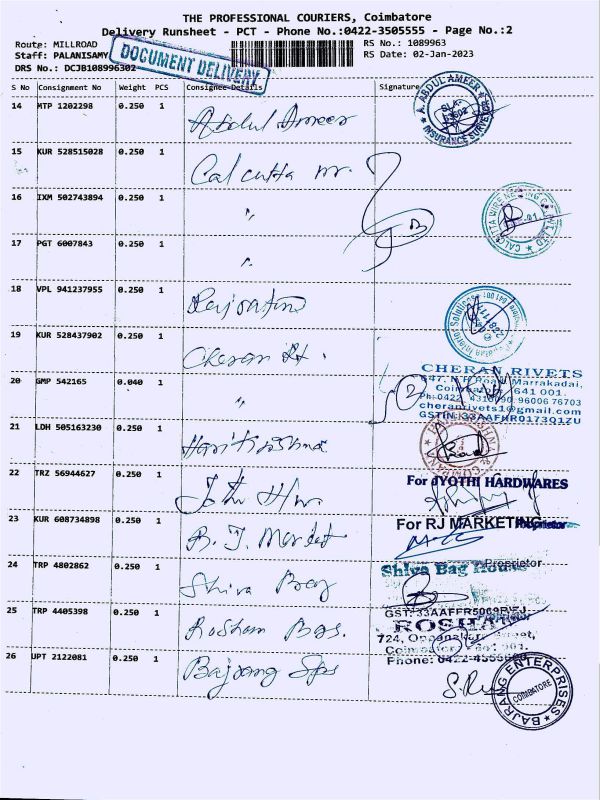 THE PROFESSIONAL COURIERS, Coimbatore
Delivery Runsheet - PCT - Phone No.:0422-3505555 - Page No.:2
Route: MILLROAD RS No.: 1089963
Staff: PALANISAMY RS Date: 02-Jan-2023
DRS No.: DCJB108996302
DOCUMENT DELIVERY
S No Consignment No Weight PCS Consignee Details Signature
14 MTP 1202298 0.250 1 Abdul Ameer
A. ABDUL AMEER
INSURANCE SURVEYOR
15 KUR 528515028 0.250 1 Calcutta
16 IXM 502743894 0.250 1 "
17 PGT 6007843 0.250 1 "
18 VPL 941237955 0.250 1
19 KUR 528437902 0.250 1 Cheran
CHERAN RIVETS
Marrakadai,
641 001.
96006 76703
cheranrivets1@gmail.com
GSTIN: 33AAFHR0173Q1ZU
20 GMP 542165 0.040 1 "
21 LDH 505163230 0.250 1
22 TRZ 56944627 0.250 1
For JYOTHI HARDWARES
23 KUR 608734898 0.250 1 R. J. Market
For RJ MARKETING
Proprietor
24 TRP 4802862 0.250 1 Shiva Bag
Proprietor
Shiva Bag House
25 TRP 4405398 0.250 1 Roshan Bgs.
ROSHAN
26 UPT 2122081 0.250 1 Bajrang Sps
BAJRANG ENTERPRISES
COIMBATORE